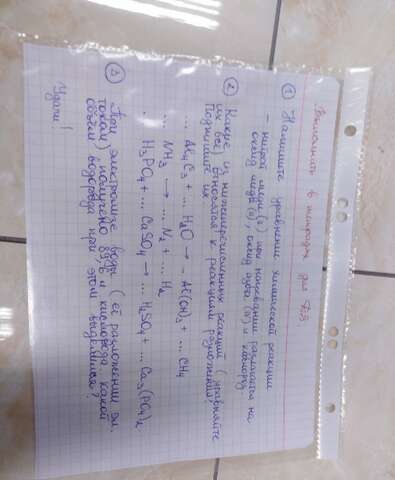 Выполнить в тетрадях для Д/З
① Напишите уравнение химической реакции
– нитрат меди (II) при нагревании разлагается на
оксид меди (II), оксид азота (IV) и кислород.
② Какие из нижеперечисленных реакций (уравняйте
их все) относятся к реакциям разложения?
Подпишите их
... Al₄C₃ + ... H₂O → ... Al(OH)₃ + ... CH₄
... NH₃ → ... N₂ + ... H₂
. H₃PO₄ + ... CaSO₄ → ... H₂SO₄ + ... Ca₃(PO₄)₂
③ При электролизе воды (её разложении эл.
током) получено 89,6 л кислорода. Какой
объём водорода при этом выделился?
Удачи!